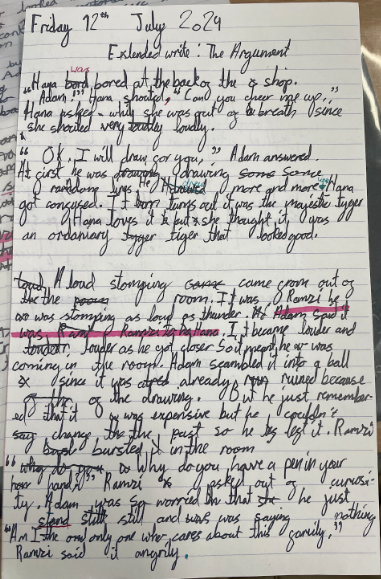 Friday 12th July 2024
Extended write: The Argument
"Hana was bored at the back of the shop.
"Adam!" Hana shouted, "Can you cheer me up.,"
Hana asked while she was out of breath (since
she shouted very loudly.
"OK, I will draw for you," Adam answered.
At first he was drawing some
random lines. He more and more Hana
got confused. It turns out it was the majestic tyger
Hana loves it but she thought it was
an ordaniary tigger tiger that looked good.
A loud stomping came from out of
the the room. It was Ramzi he
was stomping as loud as thunder. Adam said it
was Ramzi to Hana. It became louder and
louder as he got closer So it meant he was
coming in the room. Adam scambled it into a ball
since it was already ruined because
of the of the drawing. But he just remember-
ed that it was expensive but he couldn't
say change the the past so he left it. Ramzi
bursted in the room
"Why do you have a pen in your
hand?" Ramzi asked out of curiousi-
ty. Adam was so worried that he just
stand still still and was was saying nothing
"Am I the only one who cares about this family,"
Ramzi said it angrily.